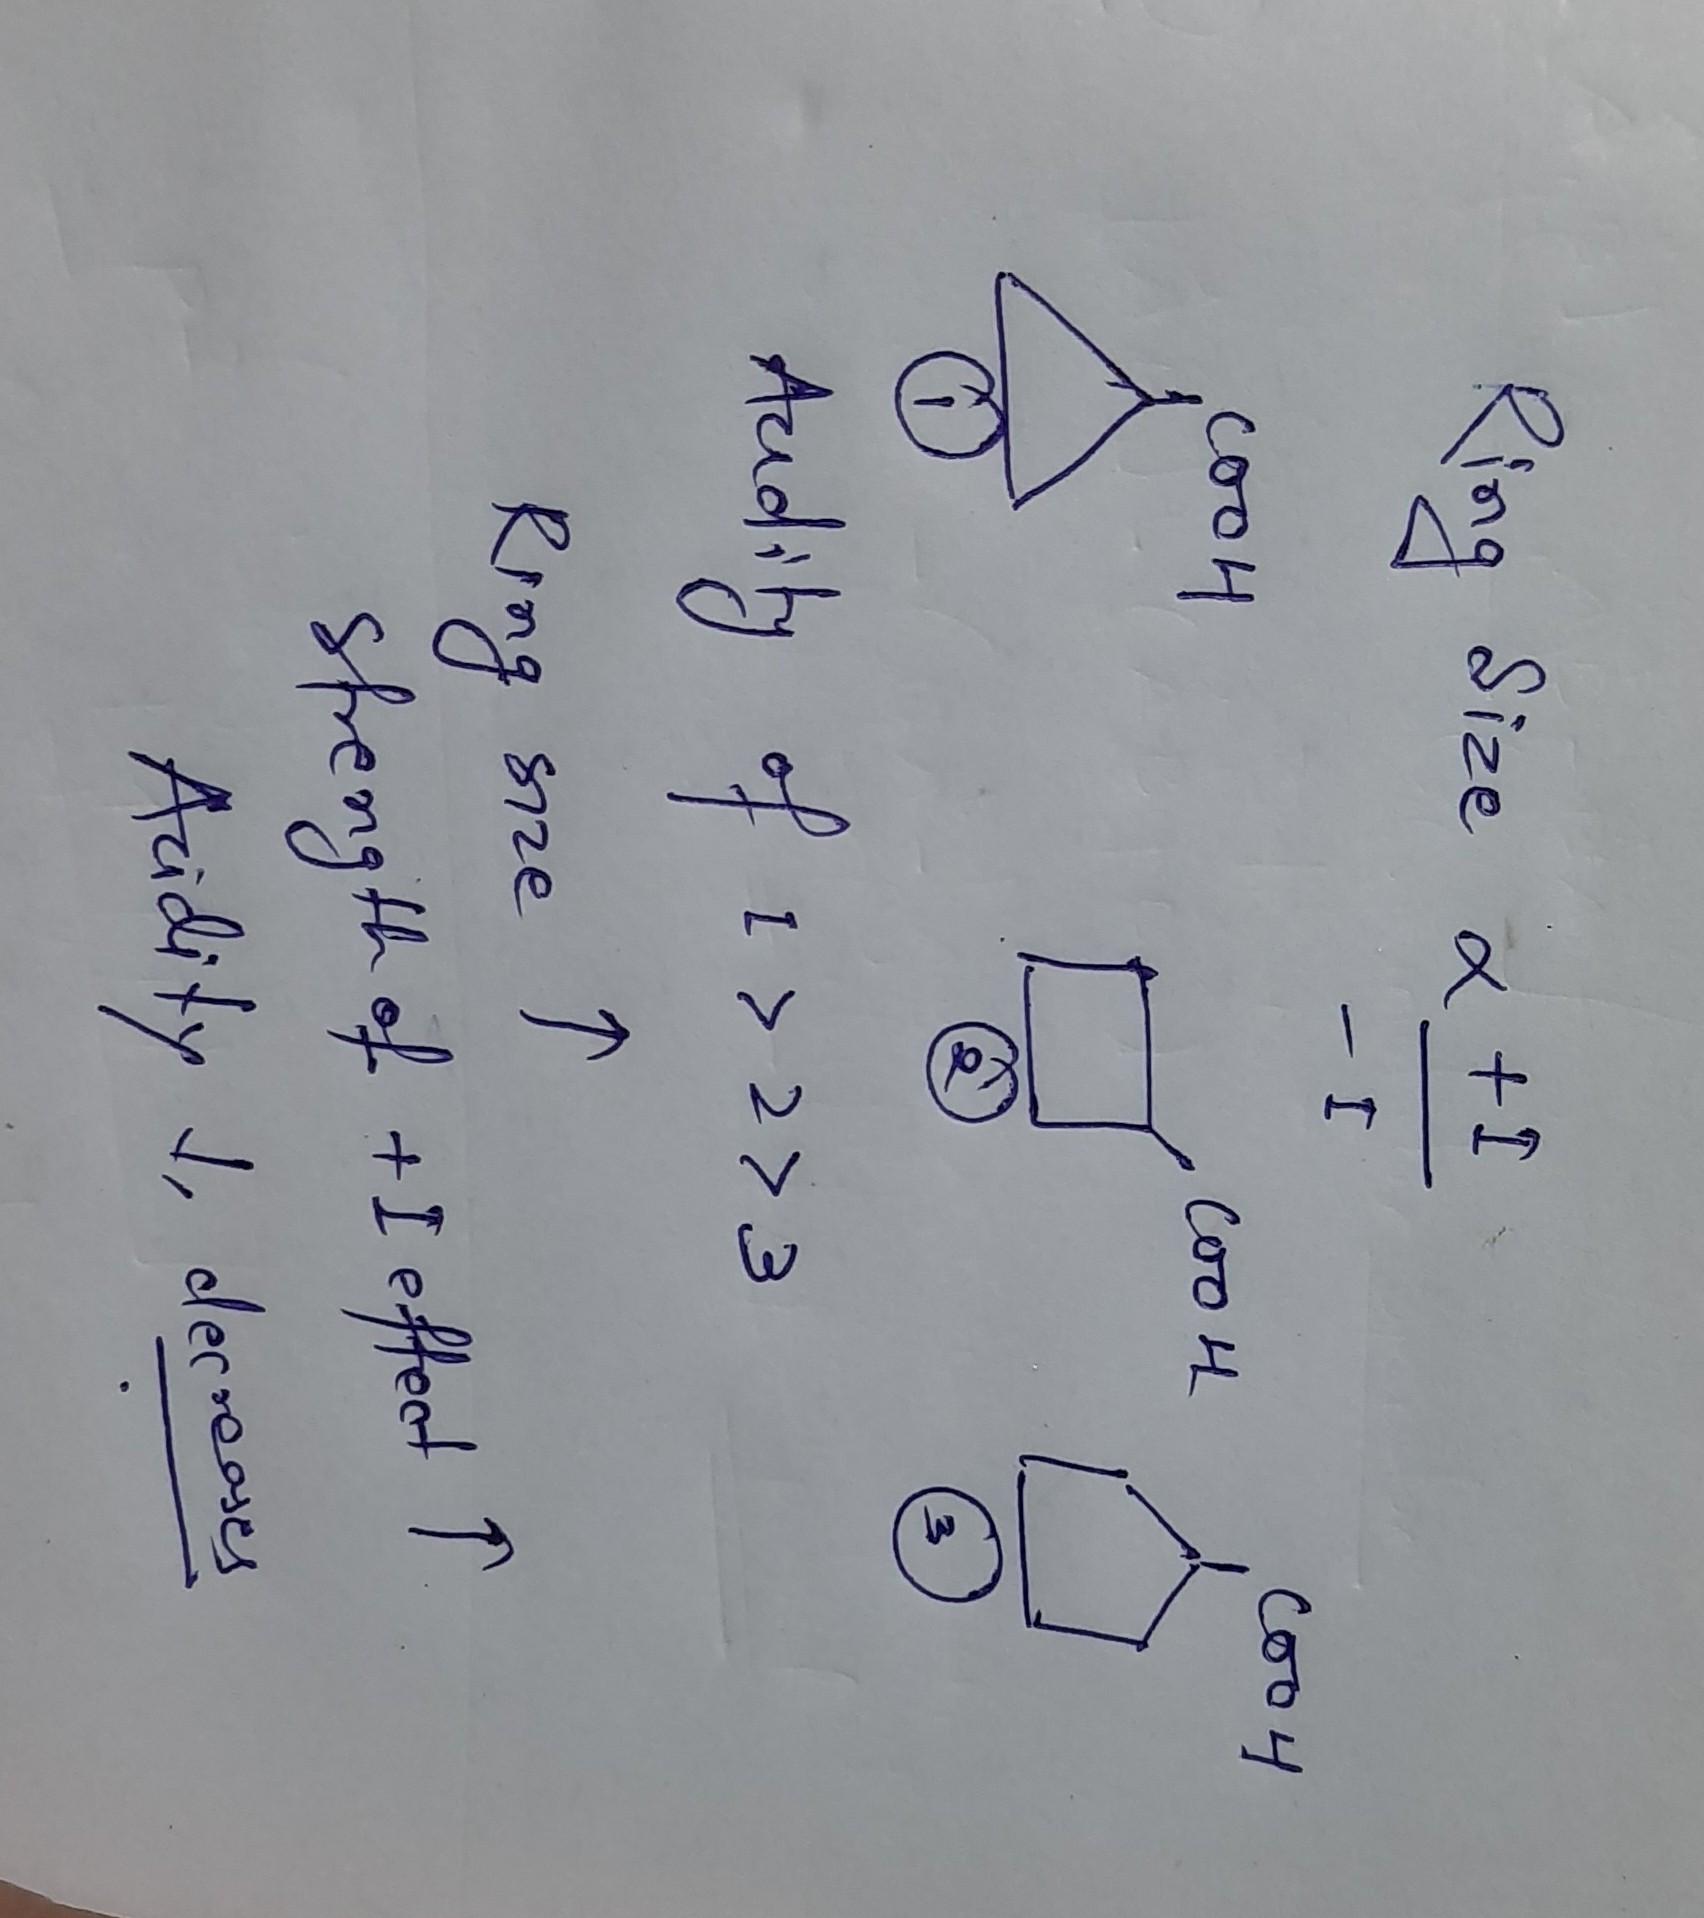 Ring Size α +I
-I
COOH COOH COOH
1 2 3
Acidity of 1 > 2 > 3
Ring size ↑
Strength of +I effect ↑
Acidity ↓, decreases